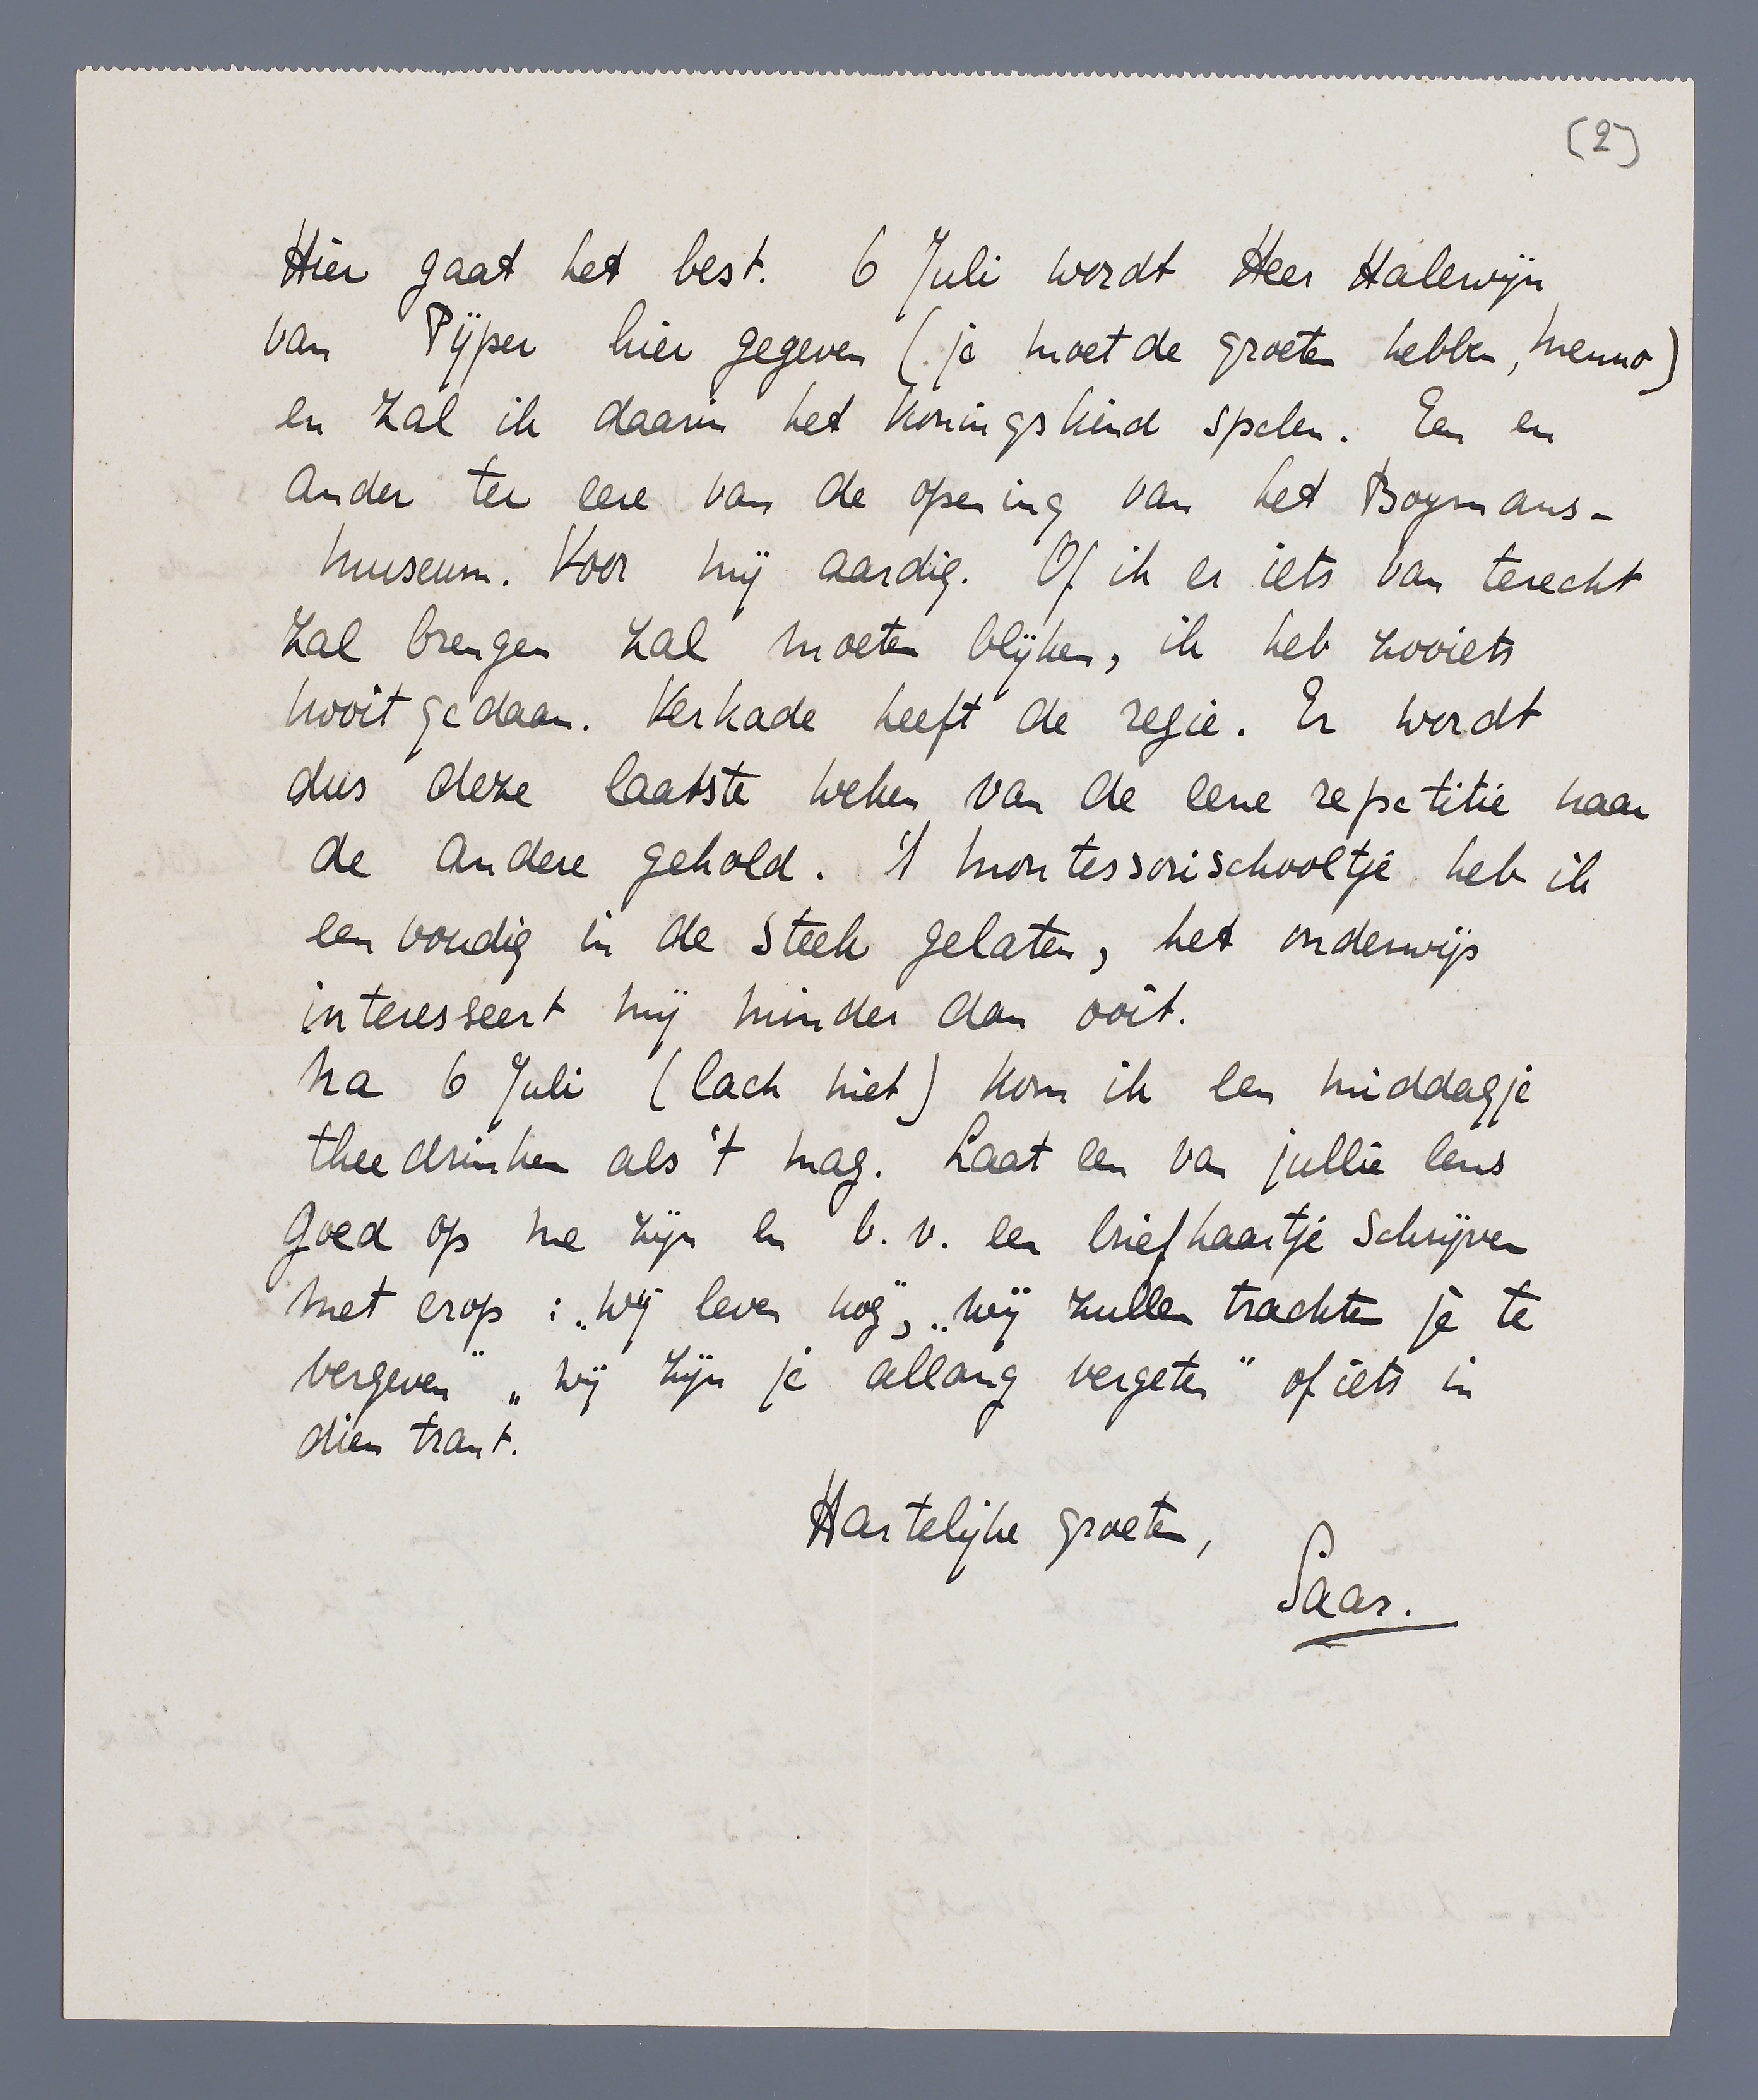 (2)
Hier gaat het best. 6 Juli wordt Heer Halewijn
van Pijper hier gegeven (je moet de groeten hebben, Menno)
en zal ik daarin het Koningskind spelen. Een en
ander ter eere van de opening van het Boymans-
museum. Voor mij aardig. Of ik er iets van terecht
zal brengen zal moeten blijken, ik heb zooiets
nooit gedaan. Verkade heeft de regie. Er wordt
dus deze laatste weken van de eene repetitie naar
de andere gehold. 't Montessorischooltje heb ik
eenvoudig in de steek gelaten, het onderwijs
interesseert mij minder dan ooit.
Na 6 Juli (lach niet) kom ik een middagje
theedrinken als 't mag. Laat een van jullie eens
goed op me zijn en b.v. een briefkaartje schrijven
met erop : „wij leven nog", „wij zullen trachten je te
vergeven" „wij zijn je allang vergeten" of iets in
dien trant.
Hartelijke groeten,
Saar.